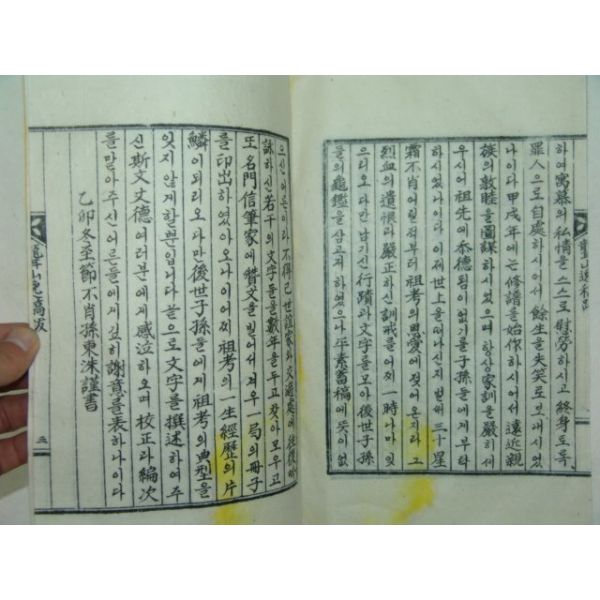 하여 寓慕의 私情을 스스로 慰勞하시고 終身토록
罪人으로 自處하시어서 餘生을 失笑로 보내시었
나이다 甲戌年에는 修譜를 始作하시어서 遠近親
族의 敦睦을 圖謀하시었으며 항상 家訓을 嚴히 세
우시어 祖先에 忝德됨이 없기를 子孫들에게 부탁
하시었나이다 이제 世上을 떠나신지 벌써 三十星
霜 不肖 어릴적부터 祖考의 思愛에 젖어온지라 그
烈血의 遺恨과 嚴正하신 訓戒를 어찌 一時나마 잊
으리오 다만 남기신 行蹟과 文字를 모아 後世子孫
들의 龜鑑을 삼고자 하였으나 平素 蓄稿에 뜻이 없
으신 어른이라 不得已 世誼家와 交遊處에 往復
하신 若干의 文字들을 數年을 두고 찾아 모우고
또 名門信筆家에 贊文을 빌어서 겨우 一局의 冊子
를 印出하였아오나 이 어찌 祖考의 一生經歷의 片
鱗이 되리오 다만 後世子孫들에게 祖考의 典型을
잊지 않게 할 뿐입니다 끝으로 文字를 撰述하여 주
신 斯文丈德 여러분에게 感泣하오며 校正과 編次
를 말아주신 어른들에게 깊히 謝意를 表하나이다
乙卯 冬至節 不肖孫 東洙 謹書
三